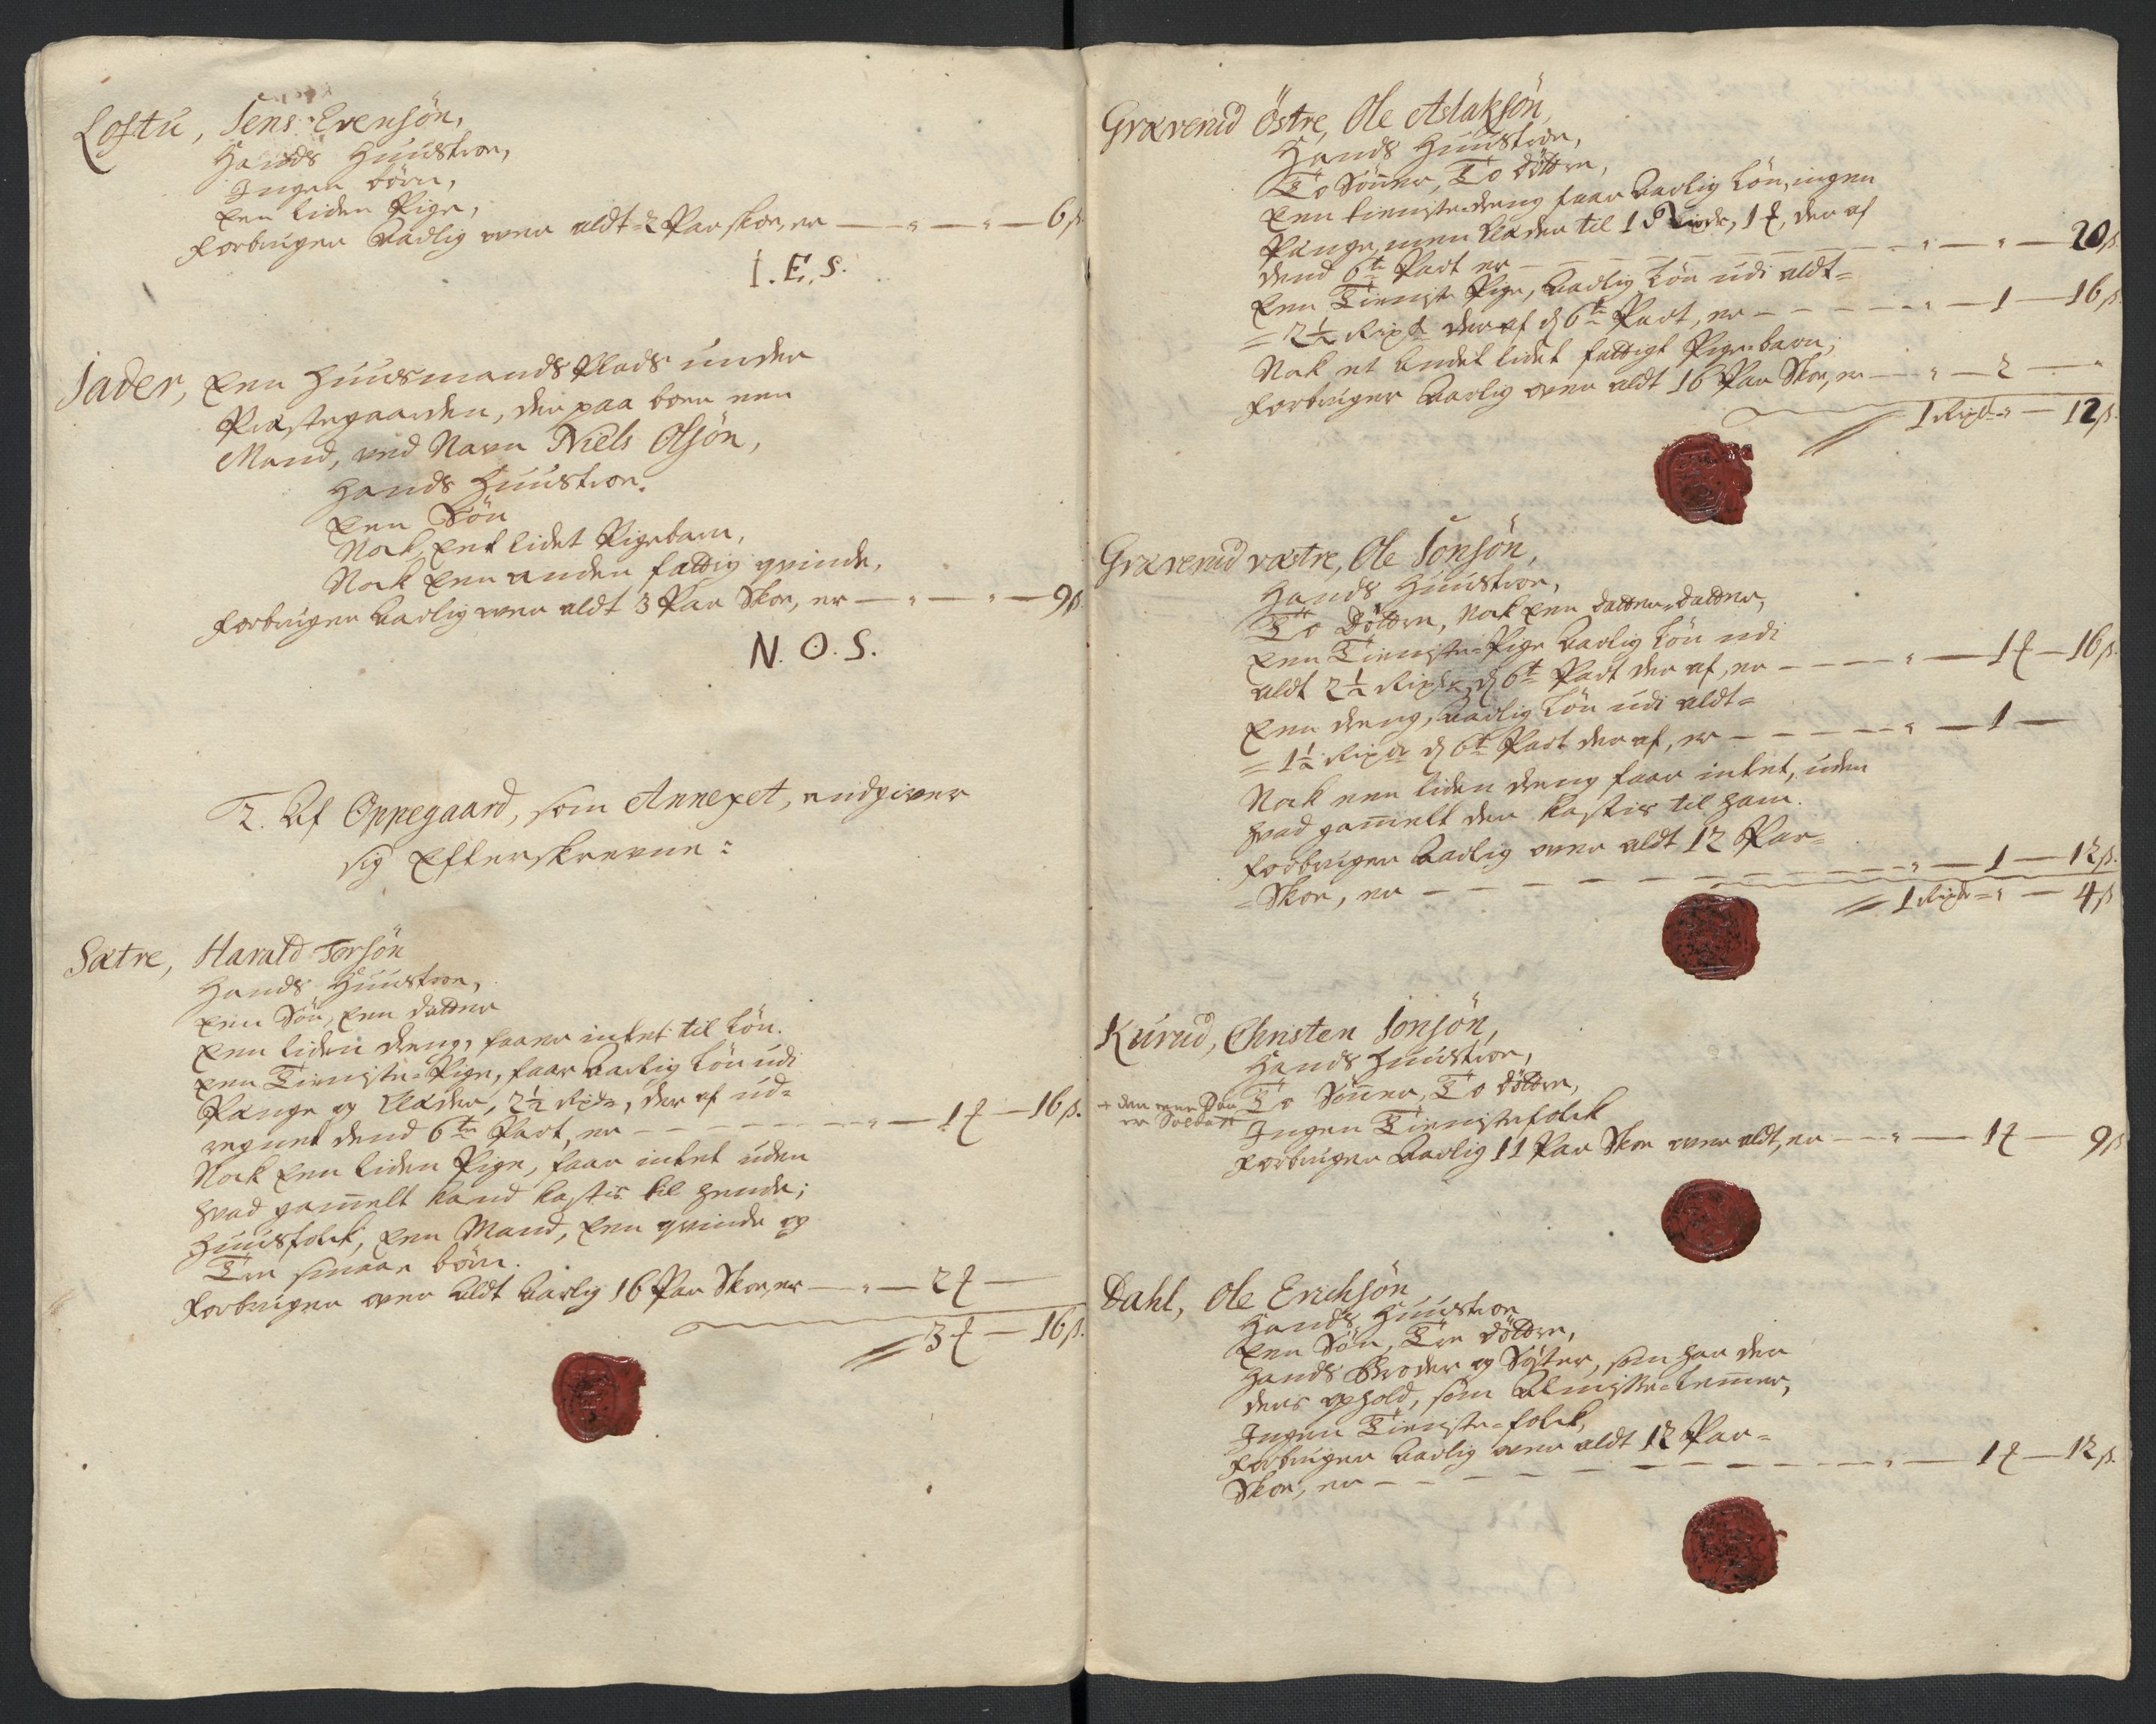 Loftu, Jens Evensøn,
Hands Huustroe,
Ingen børn,
Een liden Pige,
Forbruger Aarlig over aldt 2 Par skoe, er — " — " — 6 ß
I. E. S.
Jader, Een Huusmands Plads under
Præstegaarden, der paa boer een
Mand, ved Navn Niels Olsøn,
Hands Huustroe.
Een Søn
Nok Eet lidet Pigebarn,
Nok Een anden fattig qvinde,
Forbruger Aarlig over aldt 3 Par Skoe, er — " — " — 9 ß
N. O. S.
2. Af Oppegaard, som Annexet, andgiver
sig Efterskrevne:
Sætre, Harald Torsøn
Hands Huustroe,
Een Søn, Een datter
Een liden dreng, faaer intet til Løn.
Een Tieniste-Pige, faar Aarlig Løn udi
Pænge og Klæder, 2½ Rixdr, der af ud-
regnet dend 6te Part, er — — — " — 1 ₰ — 16 ß.
Nok Een liden Pige, faar intet uden
hvad gam̄elt hand kastis til hende;
Huusfolck, Een Mand, Een qvinde og
Tre smaae børn.
Forbruger over Aldt Aarlig 16 Par Skoe, er — " — 2 ₰ —
3 ₰ — 16 ß.
Græverud Østre, Ole Aslaksøn,
Hands Huustroe,
To Sønner, To døttre,
Een tieniste dreng faar Aarlig Løn, ingen
Pænge, men Klæder til 1 Rixdr, 1 ₰, der af
dend 6te Part er — — — " — " — 20 ß.
Een Tieniste Pige, Aarlig Løn udi aldt-
= 2½ Rixdr der af d 6te Part, er — — — " — 1 — 16 ß.
Nok et Andet lidet fattigt Pigebarn;
Forbruger Aarlig over aldt 16 Par Skoe, er — " — 2 — "
1 Rixdr — " — 12 ß.
Græverud væstre, Ole Jonsøn,
Hands Huustroe,
To Døttre, Nok Een datter-datter,
Een Tieniste-Pige Aarlig Løn udi
aldt 2½ Rixdr, d 6te Part der af, er — — — " — 1 ₰ — 16 ß.
Een dreng, Aarlig Løn udi aldt-
= 1½ Rixdr d 6te Part der af, er — — — " — 1 —
Nok een liden dreng faar intet, uden
hvad gam̄elt der kastis til ham.
Forbruger Aarlig over aldt 12 Par-
-Skoe, er — — — " — 1 — 12 ß.
1 Rixdr — " — 4 ß
Kurud, Christen Jonsøn,
Hands Huustroe,
To Sønner, To døttre,
+ den eene Søn
er Soldatt
Ingen Tienistefolck
Forbruger Aarlig 11 Par Skoe over aldt, er — " — 1 ₰ — 9 ß
Dahl, Ole Erichsøn
Hands Huustroe
Een Søn, Tre døttre,
Hands Broder og Søster, som har der
ders ophold, som Almisse-Lem̄er,
Ingen Tieniste-folck,
Forbruger Aarlig over aldt 12 Par-
Skoe, er — — — " — 1 ₰ — 12 ß.